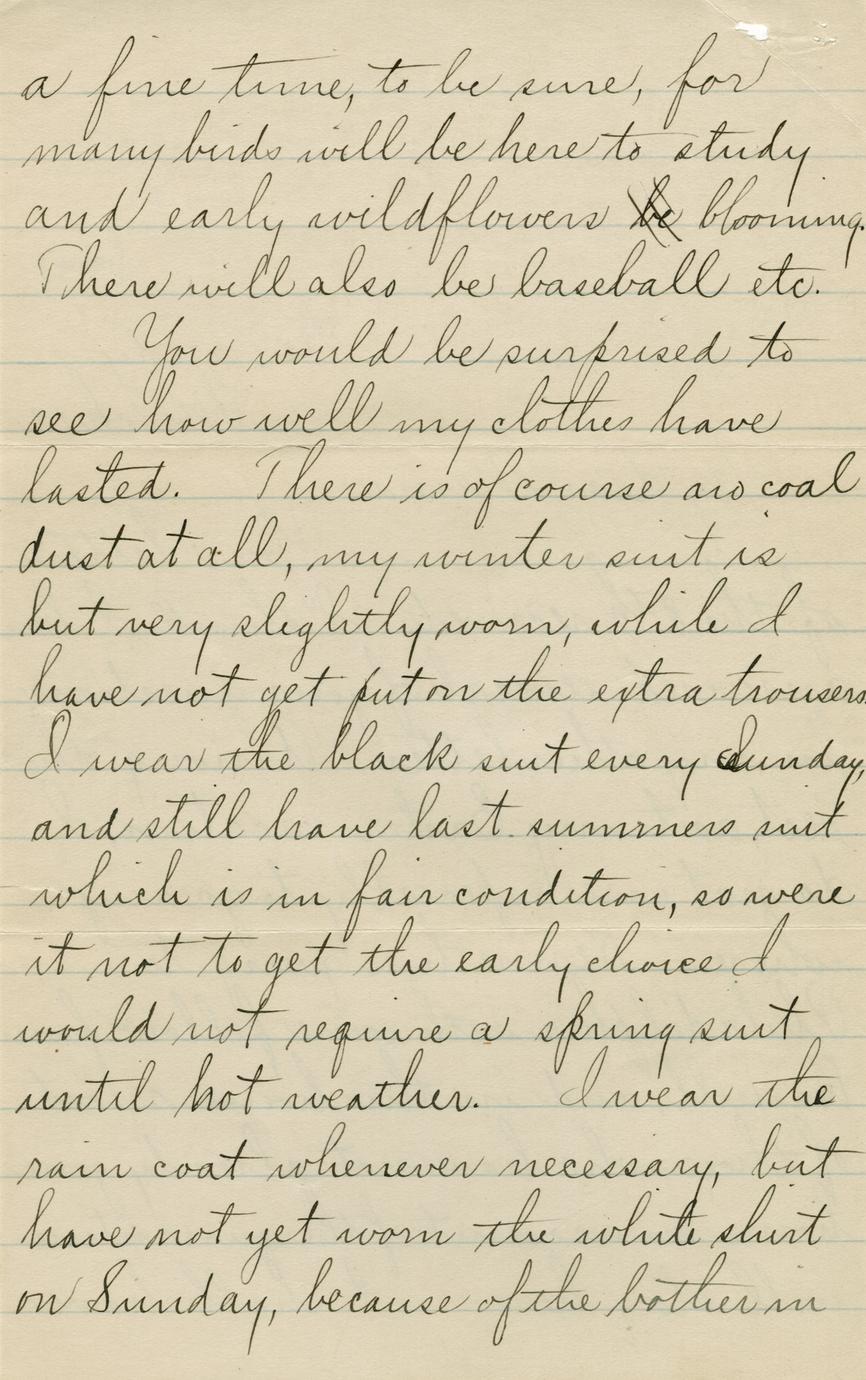 a fine time, to be sure, for
many birds will be here to study
and early wildflowers be blooming.
There will also be baseball etc.
You would be surprised to
see how well my clothes have
lasted. There is of course no coal
dust at all, my winter suit is
but very slightly worn, while I
have not yet put on the extra trousers.
I wear the black suit every Sunday,
and still have last summers suit
which is in fair condition, so were
it not to get the early choice I
would not require a spring suit
until hot weather. I wear the
rain coat whenever necessary, but
have not yet worn the white shirt
on Sunday, because of the bother in